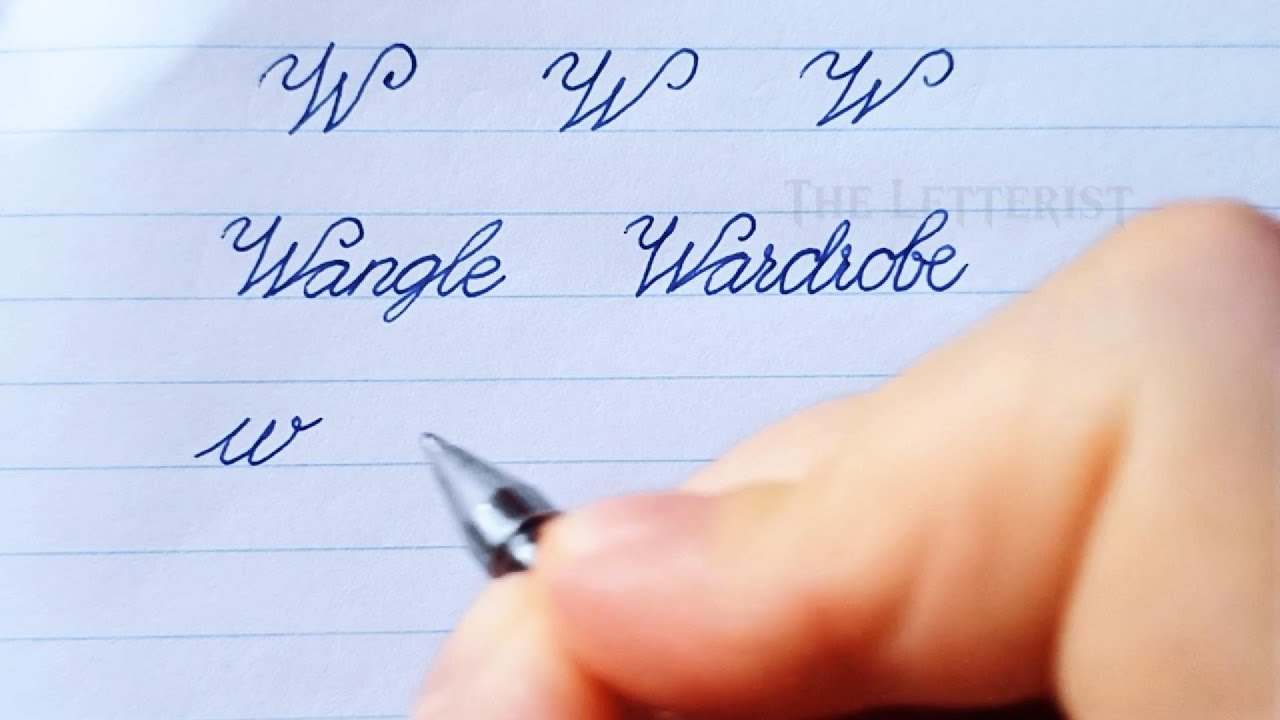 W W W
The Letterist
Wangle Wardrobe
w